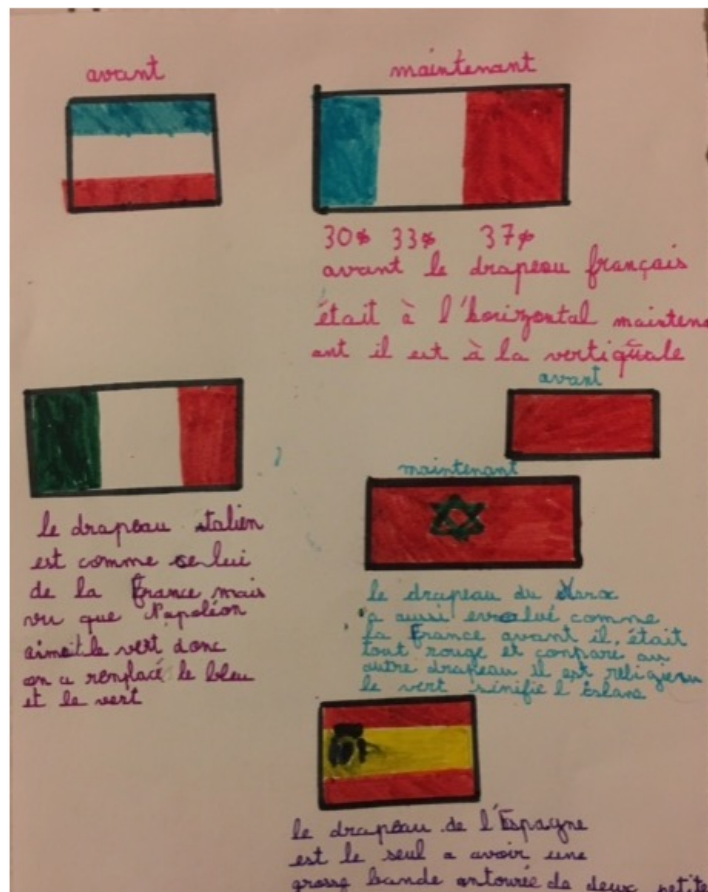 avant
maintenant
30% 33% 37%
avant le drapeau français
était à l'horizontal mainten
ant il est à la vertiquale
le drapeau italien
est comme se lui
de la France mais
vu que Napoléon
aimet le vert donc
on a remplacé le bleu
et le vert
avant
maintenant
le drapeau du Maroc
a aussi evolué comme
la France avant il était
tout rouge et compare au
autre drapeau il est religieux
le vert sinifie l'Islam
le drapeau de l'Espagne
est le seul a avoir une
grosse bande entourée de deux petite